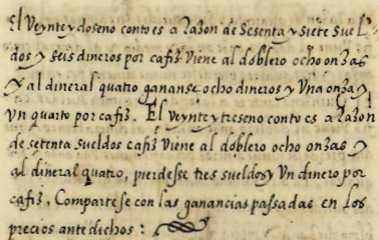 El Veynte y doseno conto es a razon de sesenta y siete suel-
dos y seis dineros por cafiz viene al doblero ocho onzas
y al dineral quatro gananse ocho dineros y Una onza y
Un quarto por cafiz. El veynte y treseno conto es a razon
de setenta sueldos cafiz viene al doblero ocho onzas y
al dineral quatro, pierdesse tres sueldos y Un dinero por
cafiz, Compartese con las ganancias passadas en los
precios antedichos: